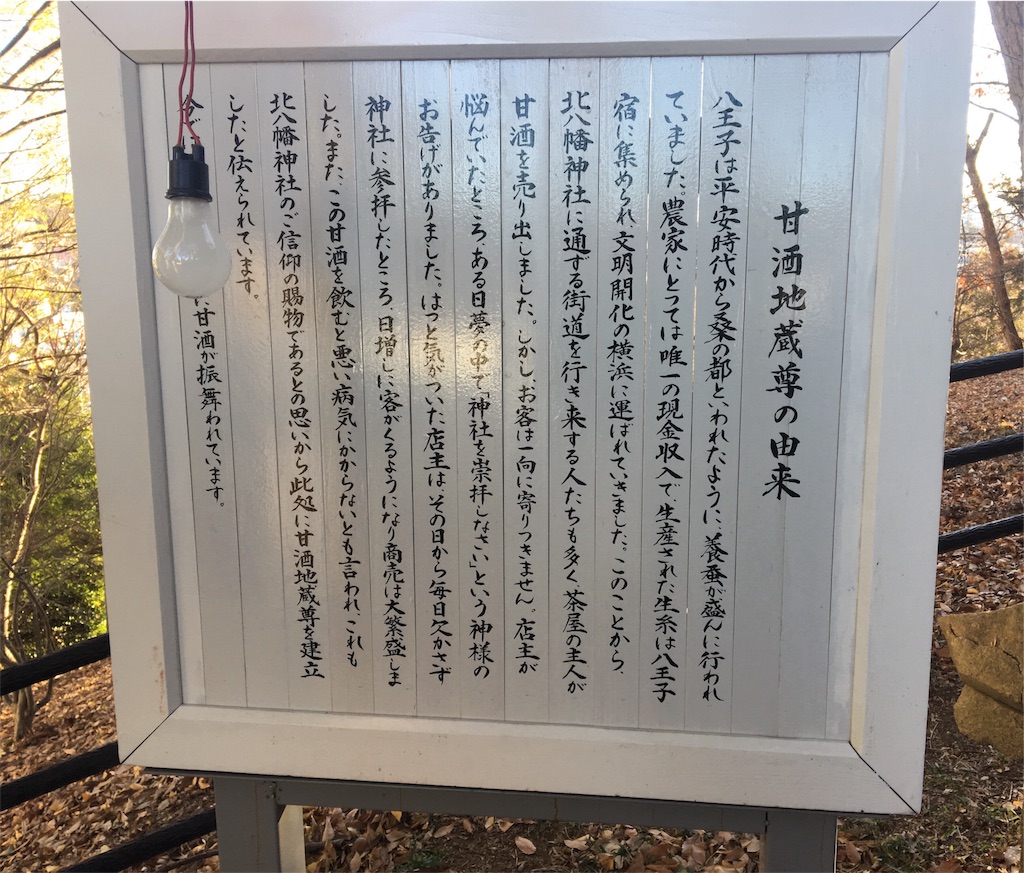 甘酒地蔵尊の由来
八王子は平安時代から桑の都といわれたように、養蚕が盛んに行われ
ていました。農家にとっては唯一の現金収入で、生産された生糸は八王子
宿に集められ、文明開化の横浜に運ばれていきました。このことから、
北八幡神社に通ずる街道を行き来する人たちも多く、茶屋の主人が
甘酒を売り出しました。しかし、お客は一向に寄りつきません。店主が
悩んでいたところ、ある日夢の中で、「神社を崇拝しなさい」という神様の
お告げがありました。はっと気がついた店主は、その日から毎日欠かさず
神社に参拝したところ、日増しに客がくるようになり商売は大繁盛しま
した。また、この甘酒を飲むと悪い病気にかからないとも言われ、これも
北八幡神社のご信仰の賜物であるとの思いから此処に甘酒地蔵尊を建立
したと伝えられています。
今
に甘酒が振舞われています。